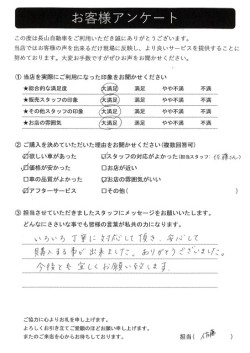 お客様アンケート
この度は長山自動車をご利用いただき誠にありがとうございます。
当店ではお客様の声を出来るだけ現場に反映し、より良いサービスを提供することに
努めております。大変お手数ですがぜひお声をお聞かせください。
① 当店を実際にご利用になった印象をお聞かせください
★総合的な満足度 大満足 満足 やや不満 不満
★販売スタッフの印象 大満足 満足 やや不満 不満
★その他スタッフの印象 大満足 満足 やや不満 不満
★お店の雰囲気 大満足 満足 やや不満 不満
② ご購入を決めていただいた理由をお聞かせください(複数回答可)
☑欲しい車があった ☑スタッフの対応がよかった(担当スタッフ: 佐藤さん)
☑価格が安かった □お店が近い
☑車の品質がよかった ☑お店の雰囲気がいい
☑アフターサービス □その他( )
③ 担当させていただきましたスタッフにメッセージをお願いいたします。
どんなにささいな事でも皆様の言葉が私共の力になります。
いろいろ丁寧に対応して頂き、安心して
購入する事が出来ました。ありがとうございました。
今後とも宜しくお願い致します。
ご協力に心よりお礼を申し上げます。
よろしくお引き立てご愛顧のほどお願い申し上げます。
またのご来店を心からお待ちしております。
担当( 佐藤 )